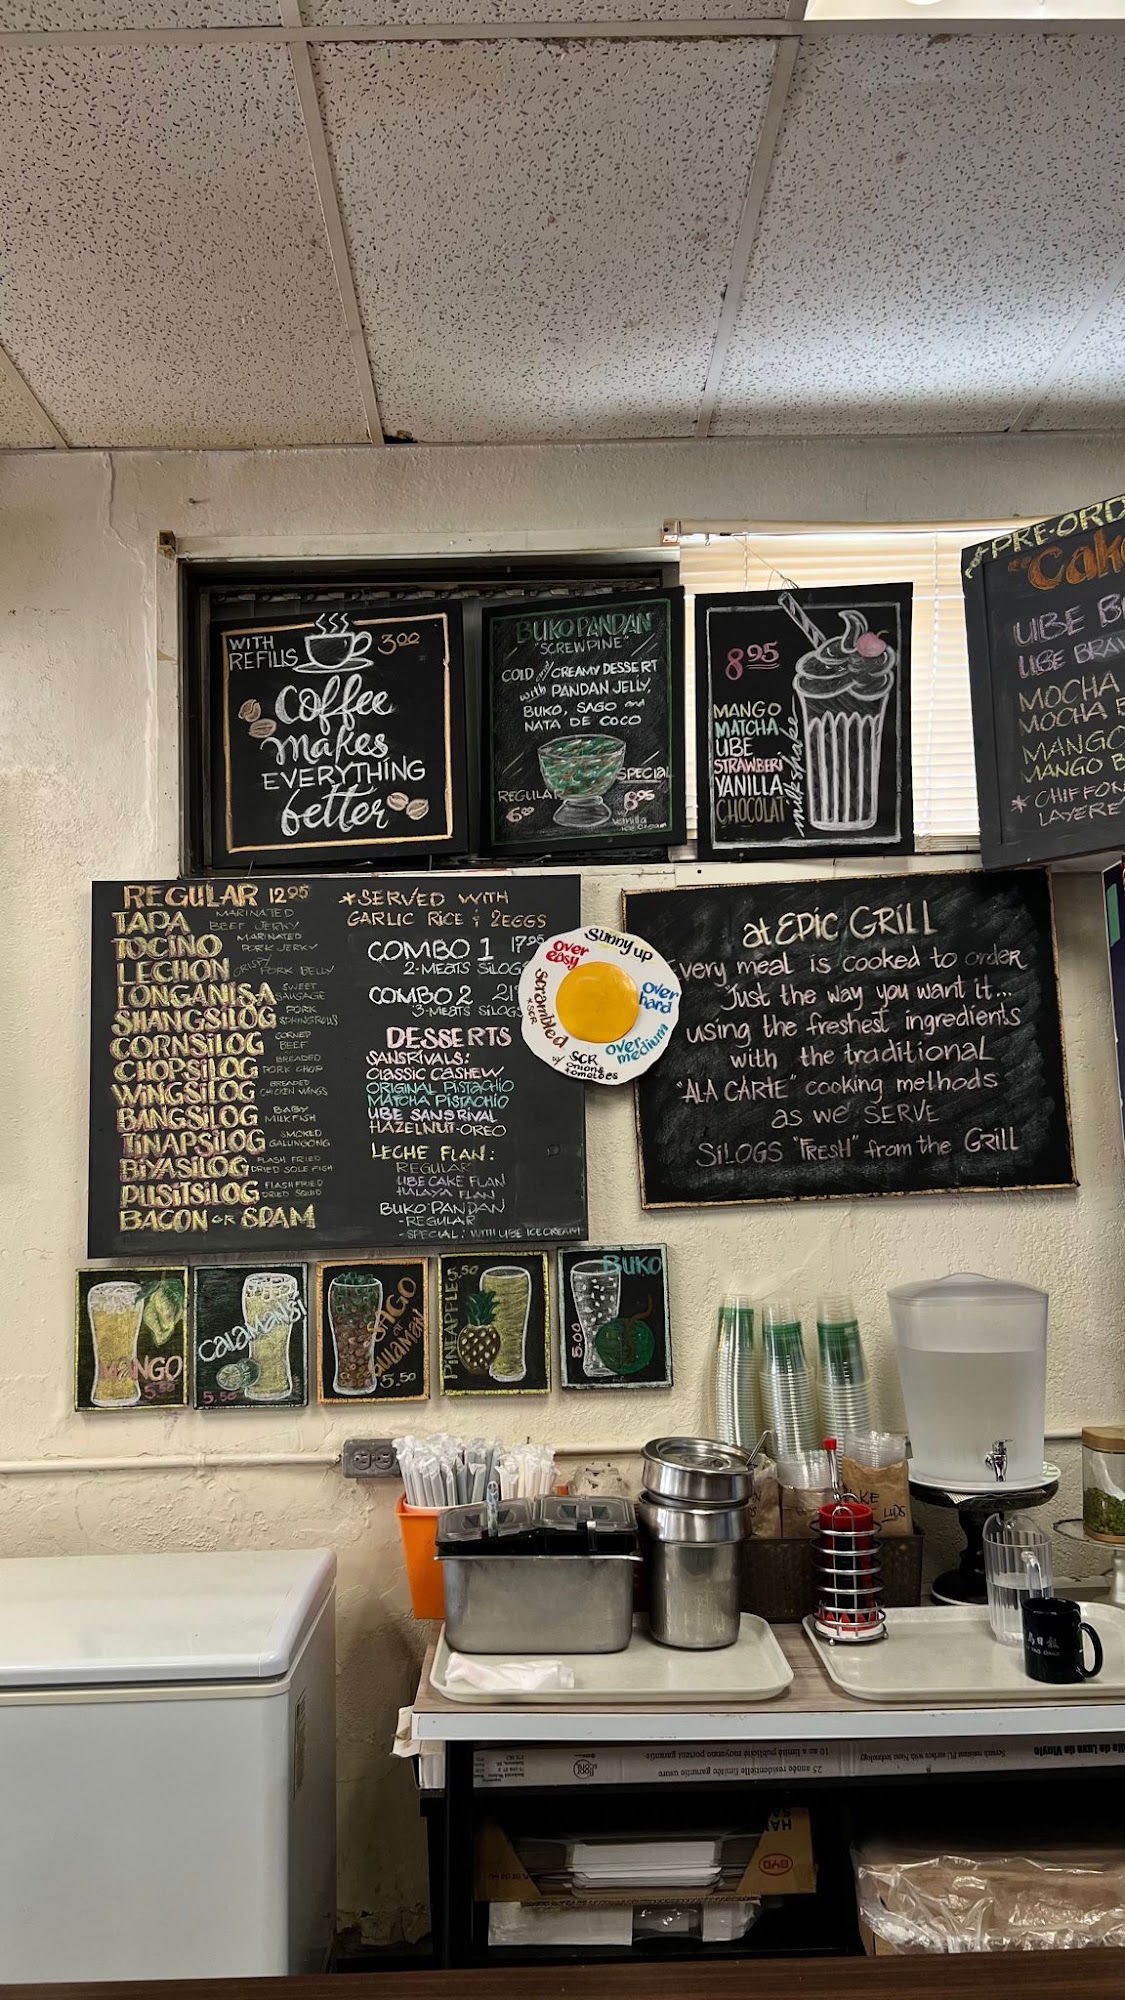 WITH
REFILLS
3.00
Coffee
makes
EVERYTHING
better
BUKO PANDAN
"SCREWPINE"
COLD and CREAMY DESSERT
with PANDAN JELLY,
BUKO, SAGO and
NATA DE COCO
REGULAR
6.00
SPECIAL
8.95
w/
vanilla
ice cream
8.95
MANGO
MATCHA
UBE
STRAWBERI
VANILLA
CHOCOLAT
milkshake
PRE-ORD
"Cake
UBE B
UBE BRA
MOCHA
MOCHA
MANGO
MANGO B
* CHIFFON
LAYERE
REGULAR 12.95
TAPA MARINATED BEEF JERKY
TOCINO MARINATED PORK JERKY
LECHON CRISPY PORK BELLY
LONGANISA SWEET SAUSAGE
SHANGSILOG PORK SPRINGROLLS
CORNSILOG CORNED BEEF
CHOPSILOG BREADED PORK CHOP
WINGSILOG BREADED CHICKEN WINGS
BANGSILOG BABY MILKFISH
TINAPSILOG SMOKED GALUNGONG
BIYASILOG FLASH FRIED DRIED SOLE FISH
PUSITSILOG FLASH FRIED DRIED SQUID
BACON or SPAM
*SERVED WITH
GARLIC RICE & 2EGGS
COMBO 1 17.95
2-MEATS SILOG
COMBO 2 21
3-MEATS SILOG
DESSERTS
SANSRIVALS:
CLASSIC CASHEW
ORIGINAL PISTACHIO
MATCHA PISTACHIO
UBE SANSRIVAL
HAZELNUT-OREO
LECHE FLAN:
REGULAR
UBE CAKE FLAN
HALAYA FLAN
BUKO PANDAN
-REGULAR
-SPECIAL: WITH UBE ICE CREAM-
Sunny up
over easy
over hard
over medium
SCR w/ onions & tomatoes
Scrambled
*SCR
at EPIC GRILL
Every meal is cooked to order
Just the way you want it...
using the freshest ingredients
with the traditional
"ALA CARTE" cooking methods
as we SERVE
SILOGS "FRESH" from the GRILL
MANGO
5.50
CALAMANSI
5.50
SAGO
at
GULAMAN
5.50
PINEAPPLE 5.50
BUKO
5.00
LIDS
25 année résidentielle limitée garantie usure
10 an a limité publicité moyenne porteni garantie
Scratch resistant PU surface with Nano technology
de Luxe de Vinyle
BYD